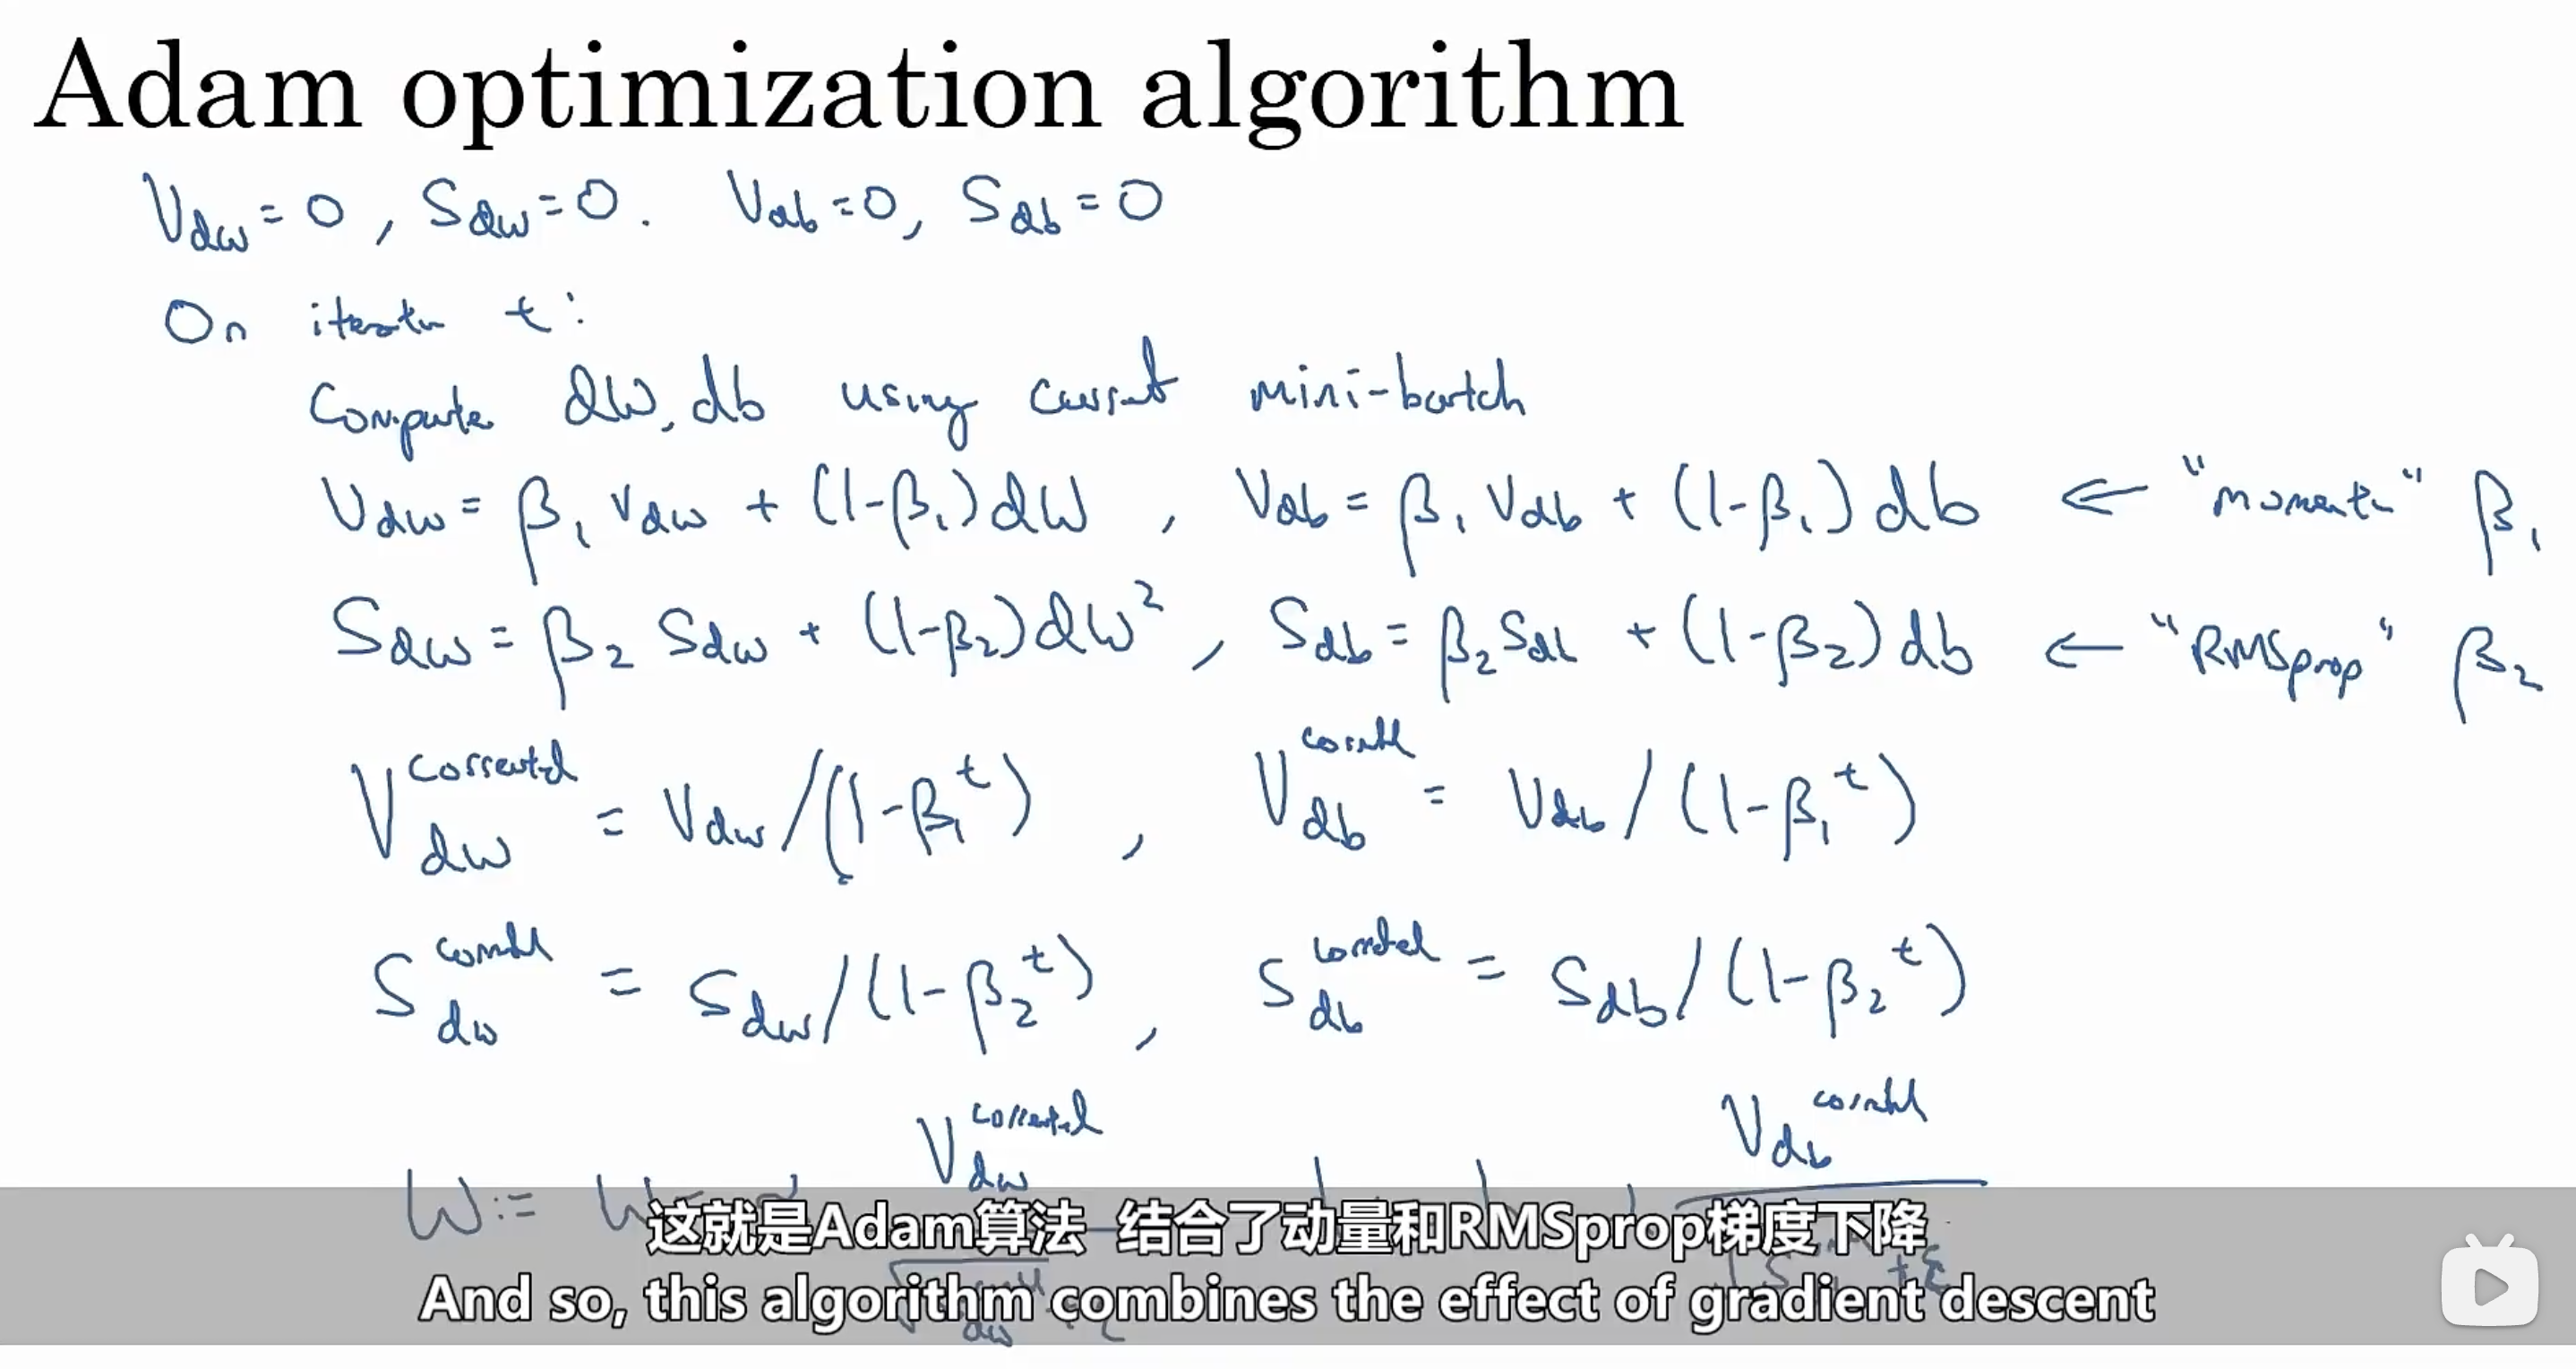 Adam optimization algorithm
V_dw = 0, S_dw = 0. V_db = 0, S_db = 0
On iteratn t:
Compute dW, db using current mini-batch
V_dw = β₁ V_dw + (1-β₁) dW , V_db = β₁ V_db + (1-β₁) db ← "momentu" β₁
S_dw = β₂ S_dw + (1-β₂) dW² , S_db = β₂ S_db + (1-β₂) db ← "RMSprop" β₂
V_dw^corrected = V_dw/(1-β₁^t) , V_db^corrected = V_db/(1-β₁^t)
S_dw^corrected = S_dw/(1-β₂^t) , S_db^corrected = S_db/(1-β₂^t)
W := W V_dw^corrected V_db^corrected
这就是Adam算法 结合了动量和RMSprop梯度下降
And so, this algorithm combines the effect of gradient descent